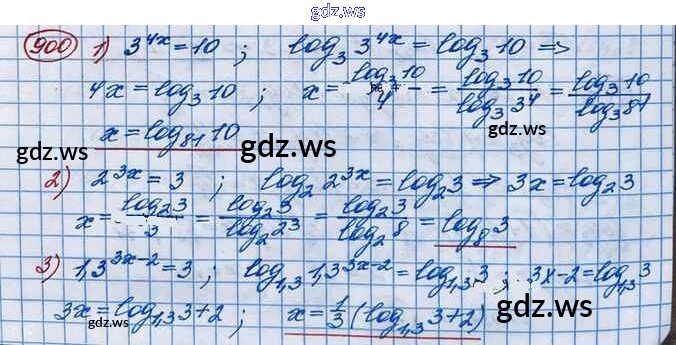 gdz.ws
900 1) 3^{4x} = 10 ; log_3 3^{4x} = log_3 10 ⇒
4x = log_3 10 ; x = \frac{log_3 10}{4} = \frac{log_3 10}{log_3 3^4} = \frac{log_3 10}{log_3 81}
x = log_{81} 10
gdz.ws gdz.ws gdz.ws
2) 2^{3x} = 3 ; log_2 2^{3x} = log_2 3 ⇒ 3x = log_2 3
x = \frac{log_2 3}{3} = \frac{log_2 3}{log_2 2^3} = \frac{log_2 3}{log_2 8} = log_8 3
3) 1,3^{3x-2} = 3 ; log_{1,3} 1,3^{3x-2} = log_{1,3} 3 ; 3x-2 = log_{1,3} 3
3x = log_{1,3} 3+2 ; x = \frac{1}{3} (log_{1,3} 3+2)
gdz.ws gdz.ws